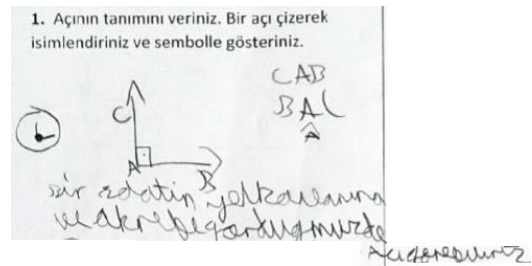 1. Açının tanımını veriniz. Bir açı çizerek
isimlendiriniz ve sembolle gösteriniz.
CAB
BAC
Â
C
A
B
bir saatin yelkovanına
ve akrebi gördüğümüzde
Açı görebiliriz